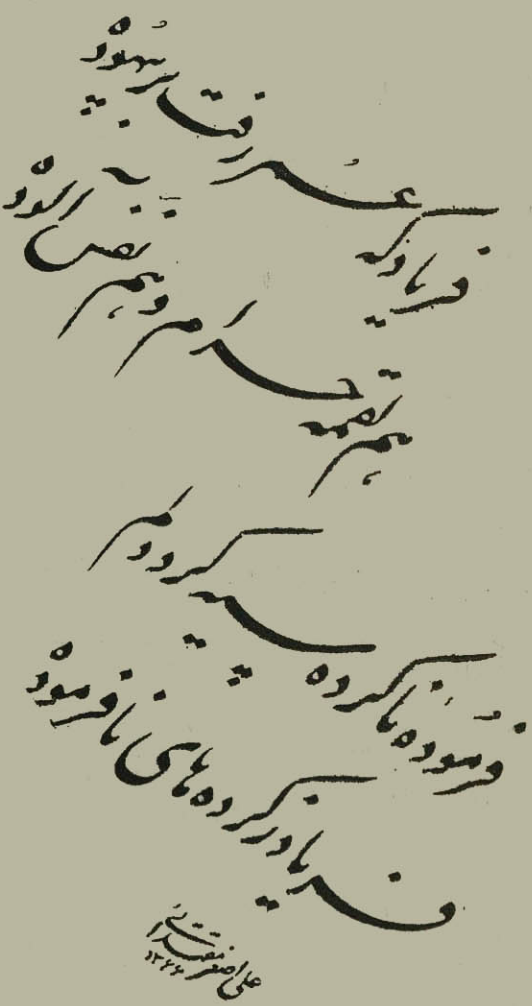 فریاد که عمر رفت بر بیهوده
هم لقمه حرام و هم نفس آلوده
فرموده ناکرده سیه کرد دلم
فریاد ز کرده‌های نافرموده
علی اصغر مقتدائی
۱۳۶۶